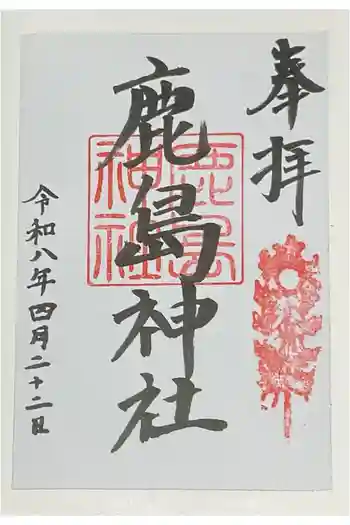 奉拝
鹿島神社
鹿島
神社
令和八年四月二十二日